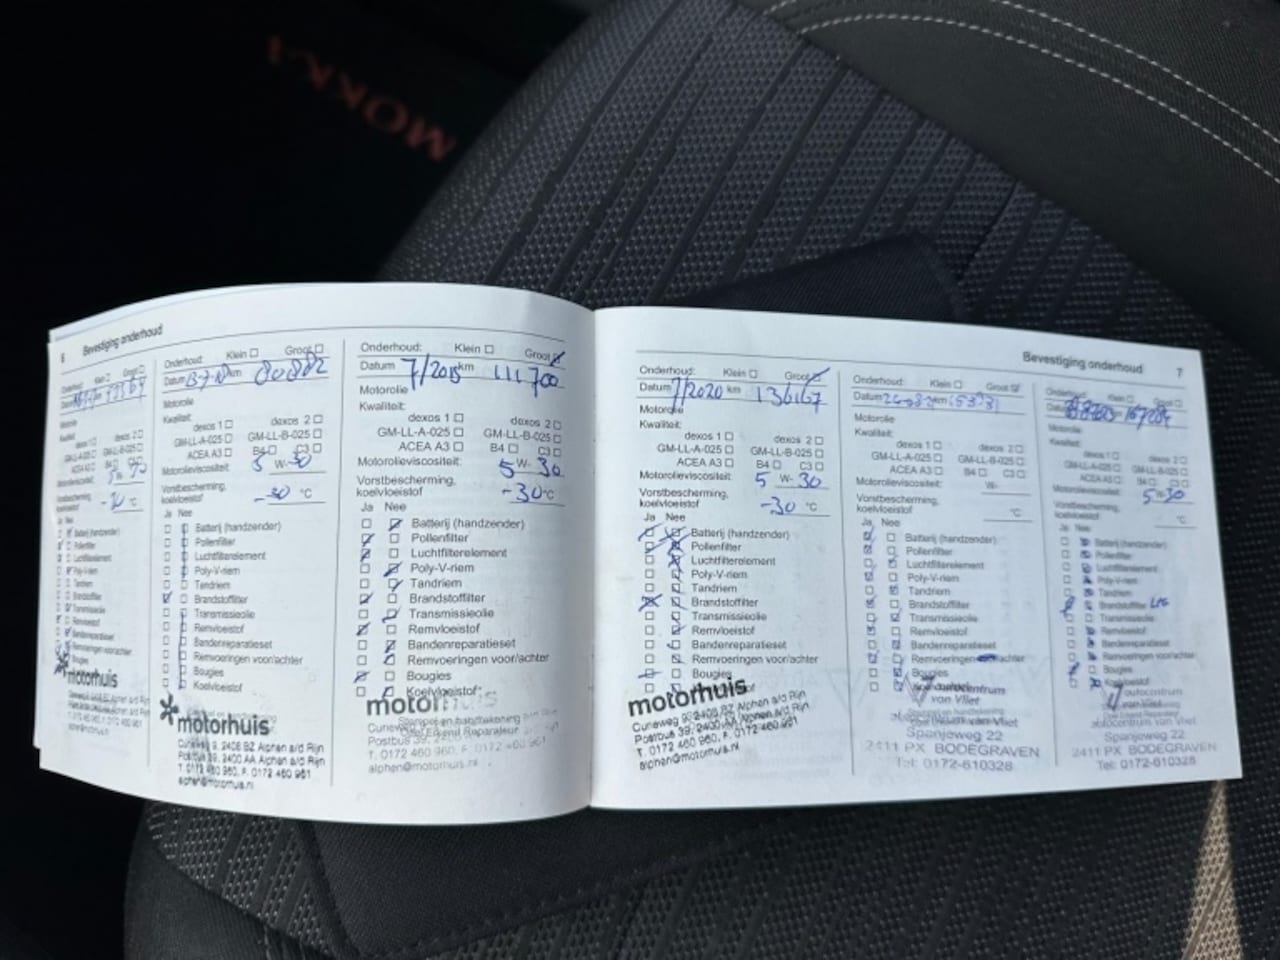 MOKKA
6 Bevestiging onderhoud
Onderhoud: Klein Groot
Datum km
Motorolie
Kwaliteit:
dexos 1 dexos 2
GM-LL-A-025 GM-LL-B-025
ACEA A3 B4 C3
Motorolieviscositeit: W-
Vorstbescherming,
koelvloeistof °C
Ja Nee
Batterij (handzender)
Pollenfilter
Luchtfilterelement
Poly-V-riem
Tandriem
Brandstoffilter
Transmissieolie
Remvloeistof
Bandenreparatieset
Remvoeringen voor/achter
Bougies
motorhuis
Onderhoud: Klein Groot
Datum km 80882
Motorolie
Kwaliteit:
dexos 1 dexos 2
GM-LL-A-025 GM-LL-B-025
ACEA A3 B4 C3
Motorolieviscositeit: 5 W-30
Vorstbescherming,
koelvloeistof -30 °C
Ja Nee
Batterij (handzender)
Pollenfilter
Luchtfilterelement
Poly-V-riem
Tandriem
Brandstoffilter
Transmissieolie
Remvloeistof
Bandenreparatieset
Remvoeringen voor/achter
Bougies
Koelvloeistof
motorhuis
Cuneweg 9, 2408 BZ Alphen a/d Rijn
Postbus 39, 2400 AA Alphen a/d Rijn
T. 0172 460 960, F. 0172 460 961
alphen@motorhuis.nl
Onderhoud: Klein Groot
Datum km 111700
Motorolie
Kwaliteit:
dexos 1 dexos 2
GM-LL-A-025 GM-LL-B-025
ACEA A3 B4 C3
Motorolieviscositeit: 5 W-30
Vorstbescherming,
koelvloeistof -30 °C
Ja Nee
Batterij (handzender)
Pollenfilter
Luchtfilterelement
Poly-V-riem
Tandriem
Brandstoffilter
Transmissieolie
Remvloeistof
Bandenreparatieset
Remvoeringen voor/achter
Bougies
Koelvloeistof
motorhuis
Stempel en handtekening
Opel Erkend Reparateur
Postbus 39,
T. 0172 460 960, F. 0172 460 961
alphen@motorhuis.nl
Bevestiging onderhoud 7
Onderhoud: Klein Groot
Datum 7/2020 km 136167
Motorolie
Kwaliteit:
dexos 1 dexos 2
GM-LL-A-025 GM-LL-B-025
ACEA A3 B4 C3
Motorolieviscositeit: 5 W-30
Vorstbescherming,
koelvloeistof -30 °C
Ja Nee
Batterij (handzender)
Pollenfilter
Luchtfilterelement
Poly-V-riem
Tandriem
Brandstoffilter
Transmissieolie
Remvloeistof
Bandenreparatieset
Remvoeringen voor/achter
Bougies
motorhuis
Cuneweg 9, 2408 BZ Alphen a/d Rijn
Postbus 39, 2400 AA Alphen a/d Rijn
T. 0172 460 960, F. 0172 460 961
alphen@motorhuis.nl
Onderhoud: Klein Groot
Datum km
Motorolie
Kwaliteit:
dexos 1 dexos 2
GM-LL-A-025 GM-LL-B-025
ACEA A3 B4 C3
Motorolieviscositeit: W-
Vorstbescherming,
koelvloeistof °C
Ja Nee
Batterij (handzender)
Pollenfilter
Luchtfilterelement
Poly-V-riem
Tandriem
Brandstoffilter
Transmissieolie
Remvloeistof
Bandenreparatieset
Remvoeringen voor/achter
Bougies
autocentrum
van Vliet
autocentrum van Vliet
Spanjeweg 22
2411 PX BODEGRAVEN
Tel: 0172-610328
Onderhoud: Klein Groot
Motorolie
Kwaliteit:
dexos 1 dexos 2
GM-LL-A-025 GM-LL-B-025
ACEA A3 B4 C3
Motorolieviscositeit: 5 W-30
Vorstbescherming,
koelvloeistof °C
Ja Nee
Batterij (handzender)
Pollenfilter
Luchtfilterelement
Poly-V-riem
Tandriem
Brandstoffilter LPG
Transmissieolie
Remvloeistof
Bandenreparatieset
Remvoeringen voor/achter
Bougies
Koelvloeistof
autocentrum
van Vliet
autocentrum van Vliet
Spanjeweg 22
2411 PX BODEGRAVEN
Tel: 0172-610328